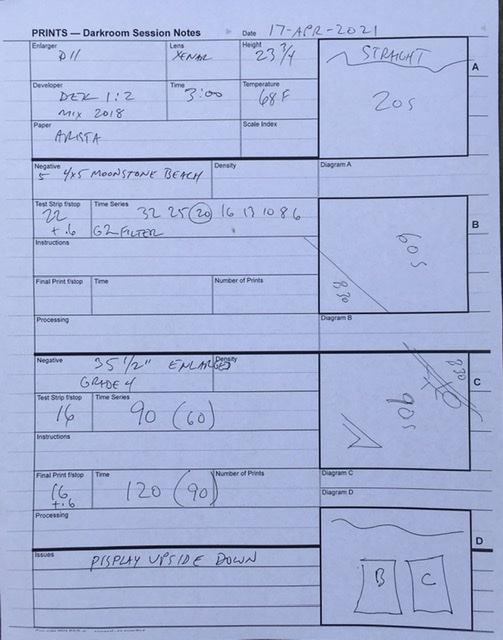 PRINTS — Darkroom Session Notes Date 17-APR-2021
Enlarger Lens Height
D11 XENAR 23 3/4
Developer Time Temperature
DEK 1:2 3:00 68F
MIX 2018
Paper Scale Index
ARISTA
STRAIGHT
20S
A
Negative Density Diagram A
5 4x5 MOONSTONE BEACH
Test Strip f/stop Time Series
22 32 25 20 16 13 10 8 6
+.6 G2 FILTER
Instructions
Final Print f/stop Time Number of Prints
Processing
B
60S
830
Diagram B
Negative Density
35 1/2" ENLARGED
GRADE 4
Test Strip f/stop Time Series
16 90 (60)
Instructions
C
830
90S
Final Print f/stop Time Number of Prints Diagram C
16 120 (90) Diagram D
+.6
Processing
D
B C
Issues
DISPLAY UPSIDE DOWN